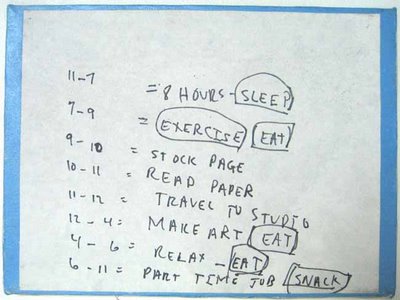 11-7 = 8 HOURS - SLEEP
7-9 = EXERCISE EAT
9-10 = STOCK PAGE
10-11 = READ PAPER
11-12 = TRAVEL TO STUDIO
12-4: MAKE ART EAT
4-6 = RELAX - EAT
6-11 = PART TIME JOB SNACK